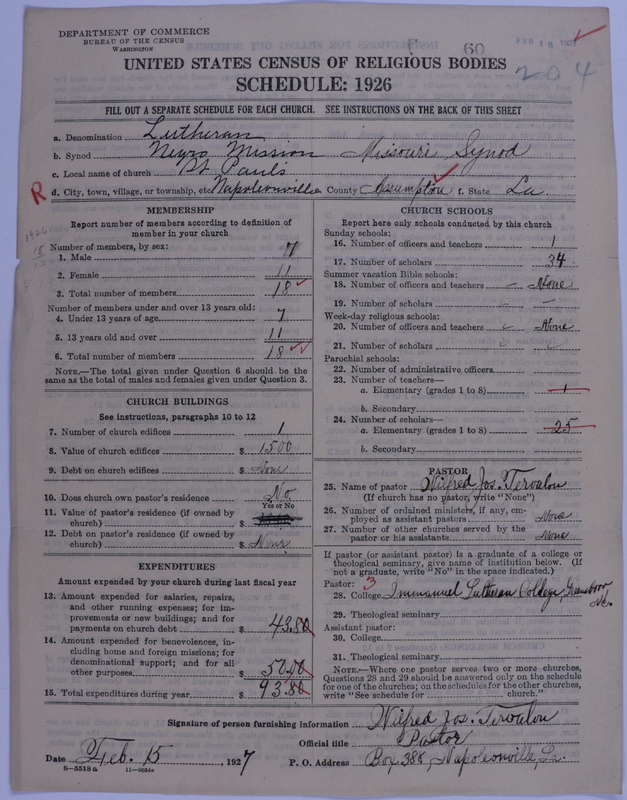 DEPARTMENT OF COMMERCE
BUREAU OF THE CENSUS
WASHINGTON
60
FEB 18 1927
204
UNITED STATES CENSUS OF RELIGIOUS BODIES
SCHEDULE: 1926
FILL OUT A SEPARATE SCHEDULE FOR EACH CHURCH. SEE INSTRUCTIONS ON THE BACK OF THIS SHEET
a. Denomination Lutheran
b. Synod Negro Mission Missouri Synod
c. Local name of church St Paul's
R d. City, town, village, or township, etc. Napoleonville County Assumpton f. State La.
MEMBERSHIP
Report number of members according to definition of
member in your church
1926
Number of members, by sex:
1. Male 7
2. Female 11
3. Total number of members 18
Number of members under and over 13 years old:
4. Under 13 years of age 7
5. 13 years old and over 11
6. Total number of members 18
NOTE.—The total given under Question 6 should be
same as the total of males and females given under Question 3.
CHURCH BUILDINGS
See instructions, paragraphs 10 to 12
7. Number of church edifices 1
8. Value of church edifices $ 1500
9. Debt on church edifices $ None
10. Does church own pastor's residence No
Yes or No
11. Value of pastor's residence (if owned by
church) $
12. Debt on pastor's residence (if owned by
church) $ None
EXPENDITURES
Amount expended by your church during last fiscal year
13. Amount expended for salaries, repairs,
and other running expenses; for im-
provements or new buildings; and for
payments on church debt $ 43.80
14. Amount expended for benevolences, in-
cluding home and foreign missions; for
denominational support; and for all
other purposes $ 50.00
15. Total expenditures during year $ 93.80
CHURCH SCHOOLS
Report here only schools conducted by this church
Sunday schools:
16. Number of officers and teachers 1
17. Number of scholars 34
Summer vacation Bible schools:
18. Number of officers and teachers None
19. Number of scholars –
Week-day religious schools:
20. Number of officers and teachers None
21. Number of scholars
Parochial schools:
22. Number of administrative officers
23. Number of teachers—
a. Elementary (grades 1 to 8) 1
b. Secondary
24. Number of scholars—
a. Elementary (grades 1 to 8) 25
b. Secondary
PASTOR
25. Name of pastor Wilfred Jos. Tervalon
(If church has no pastor, write "None")
26. Number of ordained ministers, if any, em-
ployed as assistant pastors None
27. Number of other churches served by the
pastor or his assistants None
If pastor (or assistant pastor) is a graduate of a college or
theological seminary, give name of institution below. (If
not a graduate, write "No" in the space indicated.)
Pastor: 3
28. College Immanuel Lutheran College, Greensboro N.C.
29. Theological seminary
Assistant pastor:
30. College
31. Theological seminary
NOTE.—Where one pastor serves two or more churches,
Questions 28 and 29 should be answered only on the schedule
for one of the churches; on the schedules for the other churches,
write "See schedule for church."
Signature of person furnishing information Wilfred Jos. Tervalon
Official title Pastor
Date Feb. 15, 1927 P. O. Address Box 388, Napoleonville, La.
8—5518a 11—9884